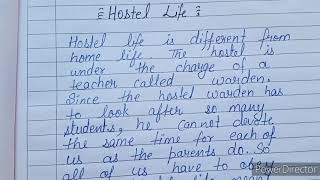 Hostel Life
Hostel life is different from
home life The hostel is
under the charge of a
teacher called warden.
Since the hostel warden has
to look after so many
students, he cannot devote
the same time for each of
us as the parents do. So
all of us have to obey
PowerDirector